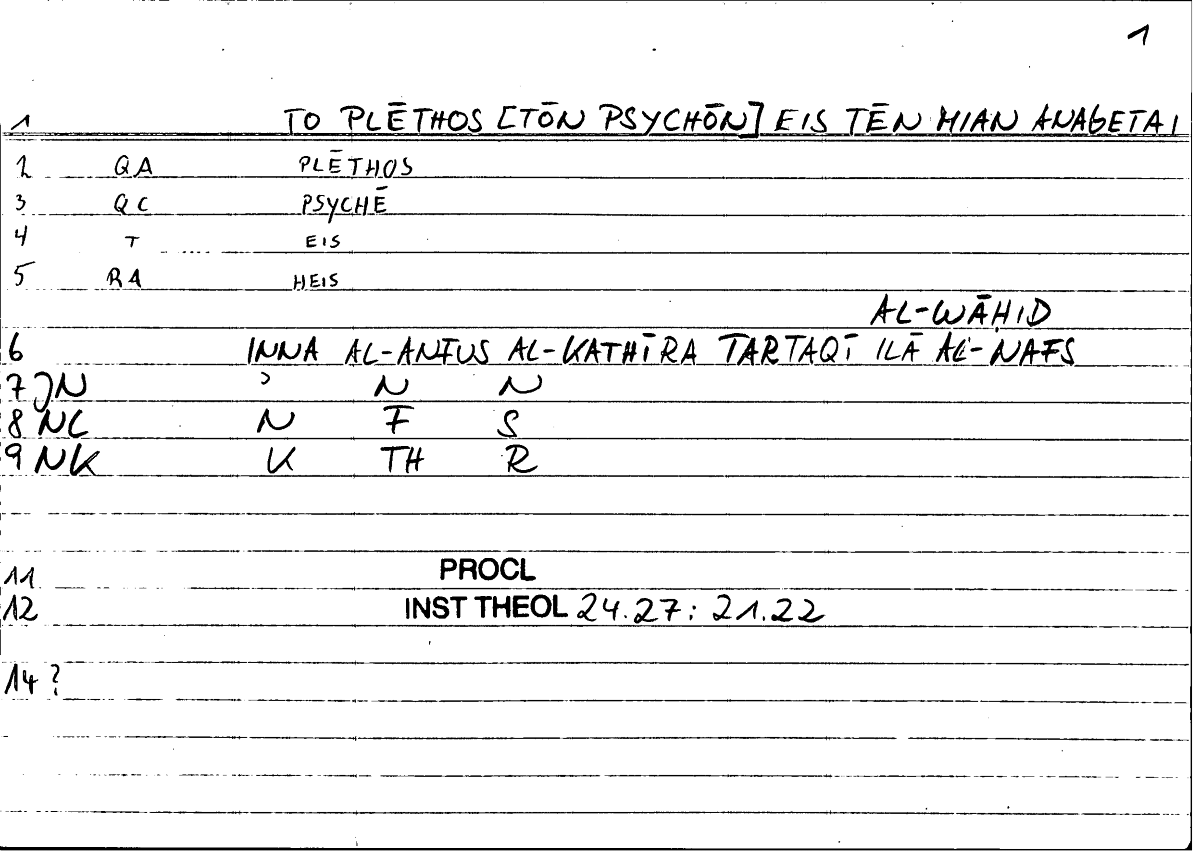 1
1 TO PLĒTHOS [TŌN PSYCHŌN] EIS TĒN MIAN ANAGETAI
2 QA PLĒTHOS
3 QC PSYCHĒ
4 T EIS
5 RA HEIS
AL-WĀḤID
6 INNA AL-ANFUS AL-KATHĪRA TARTAQĪ ILĀ AL-NAFS
7 JN ʾ N N
8 NC N F S
9 NK K TH R
11 PROCL
12 INST THEOL 24.27: 21.22
14 ?